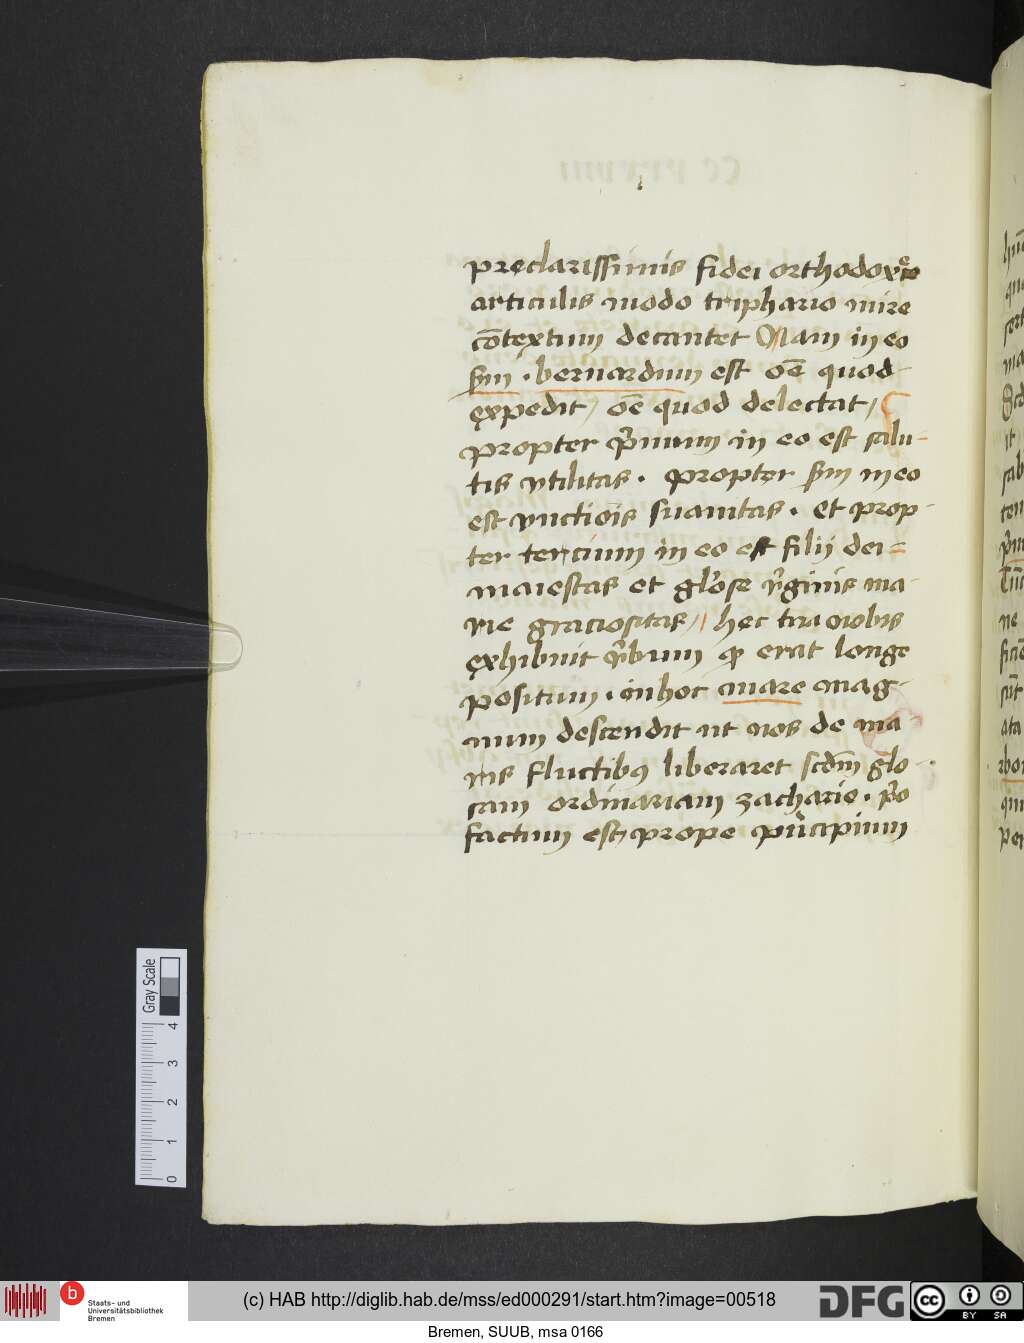 preclarissimis fidei orthodoxe
articulis modo triphario mire
cōtextum decantet Nam in eo
sm̄ . bernardum est oē quod
expedit / oē quod delectat /
propter p̄mum in eo est salu-
tis vtilitas . propter sm̄ in eo
est vnctiōis suauitas . et prop-
ter tercium in eo est filij dei
maiestas et gl'ose v'ginis ma-
rie graciositas // hec tria nobis
exhibuit v'bum qͥ erat longe
positum . inhoc mare mag-
num descendit ut nos de ma
ris fluctibꝯ liberaret scdm̄ glo-
sam ordinariam zacharie .
factum est prope pn̄cipium
Gray Scale
0 1 2 3 4
b Staats- und
Universitätsbibliothek
Bremen
(c) HAB http://diglib.hab.de/mss/ed000291/start.htm?image=00518
DFG
cc BY SA
Bremen, SUUB, msa 0166